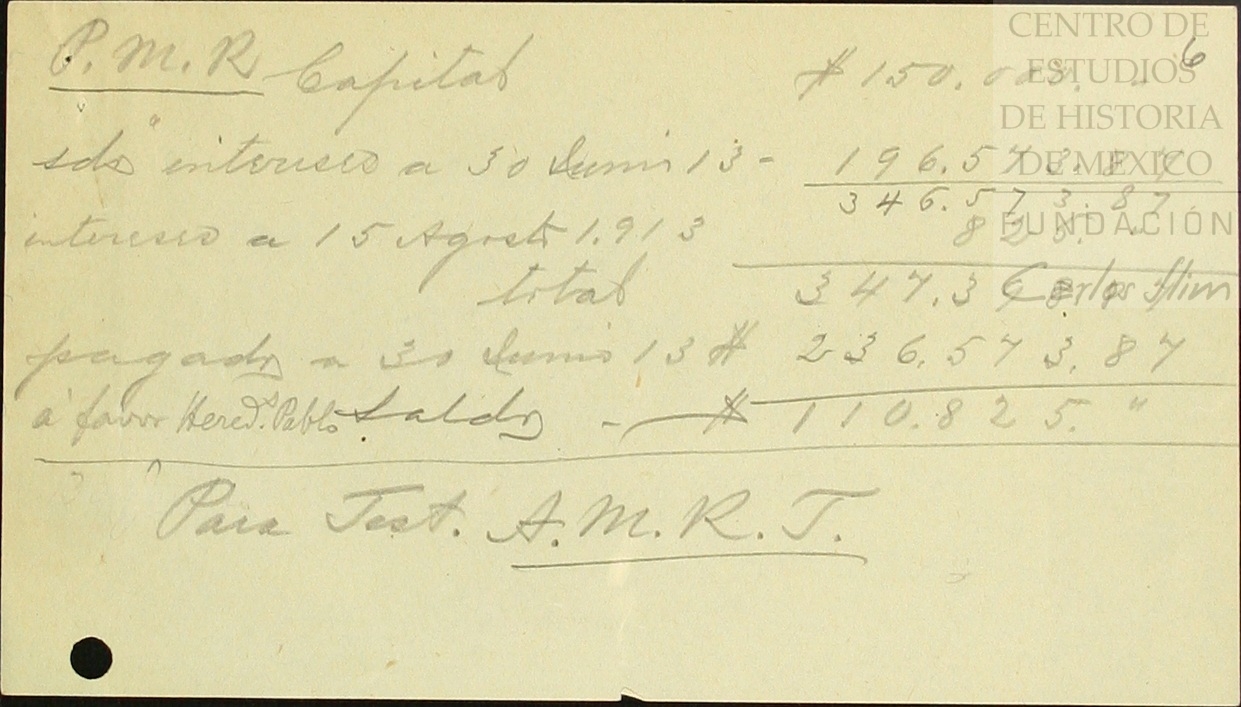 CENTRO DE
ESTUDIOS
DE HISTORIA
DE MEXICO
FUNDACIÓN
Carlos Slim
6
P. M. R Capital $ 150.000. -
sdo intereses a 30 Junio 13 - 196.573.87
346.573.87
intereses a 15 Agosto 1.913 825. "
total 347.398.87
pagado a 30 Junio 13 $ 236.573.87
á favor Hered.s Pablo Saldo - $ 110.825. "
Para Test. A. M. R. T.